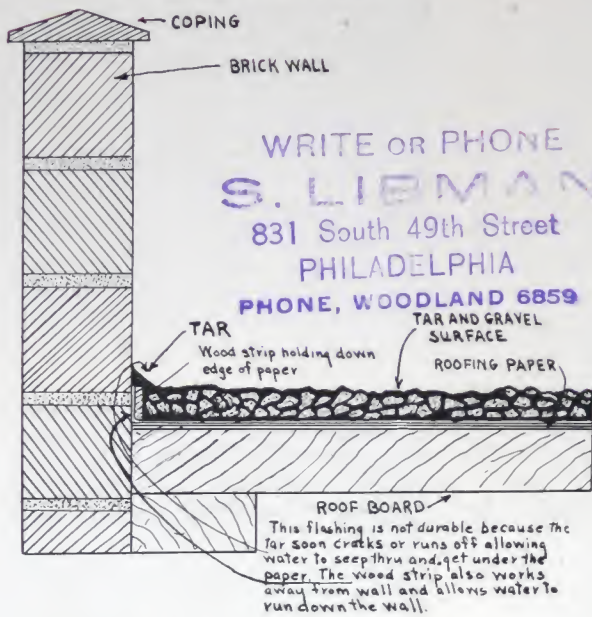 COPING
BRICK WALL
WRITE OR PHONE
S. LIBMAN
831 South 49th Street
PHILADELPHIA
PHONE, WOODLAND 6859
TAR AND GRAVEL
SURFACE
TAR
Wood strip holding down
edge of paper
ROOFING PAPER
ROOF BOARD
This flashing is not durable because the
tar soon cracks or runs off allowing
water to seep thru and get under the
paper. The wood strip also works
away from wall and allows water to
run down the wall.